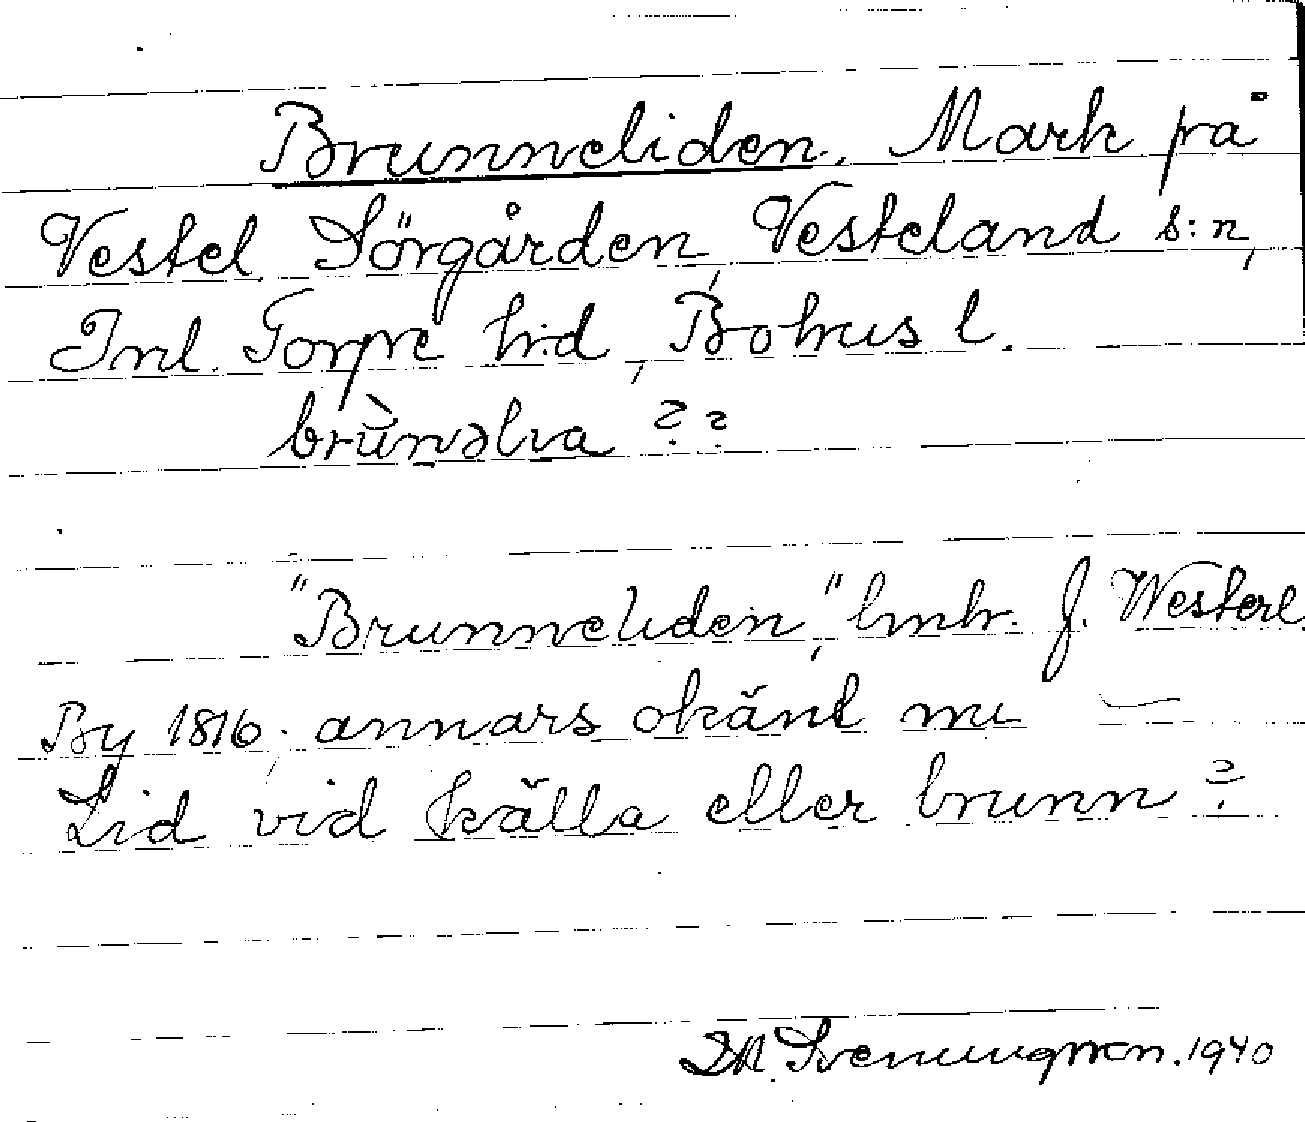 Brunneliden. Mark på
Vestel. Sörgården, Vesteland s:n,
Inl. Torpe h:d, Bohus l.
brùnəlıa ??
"Brunneliden", lmhr. f. Westerl.
By 1816; annars okänt nu —
Lid vid källa eller brunn?
Sveningsson. 1940